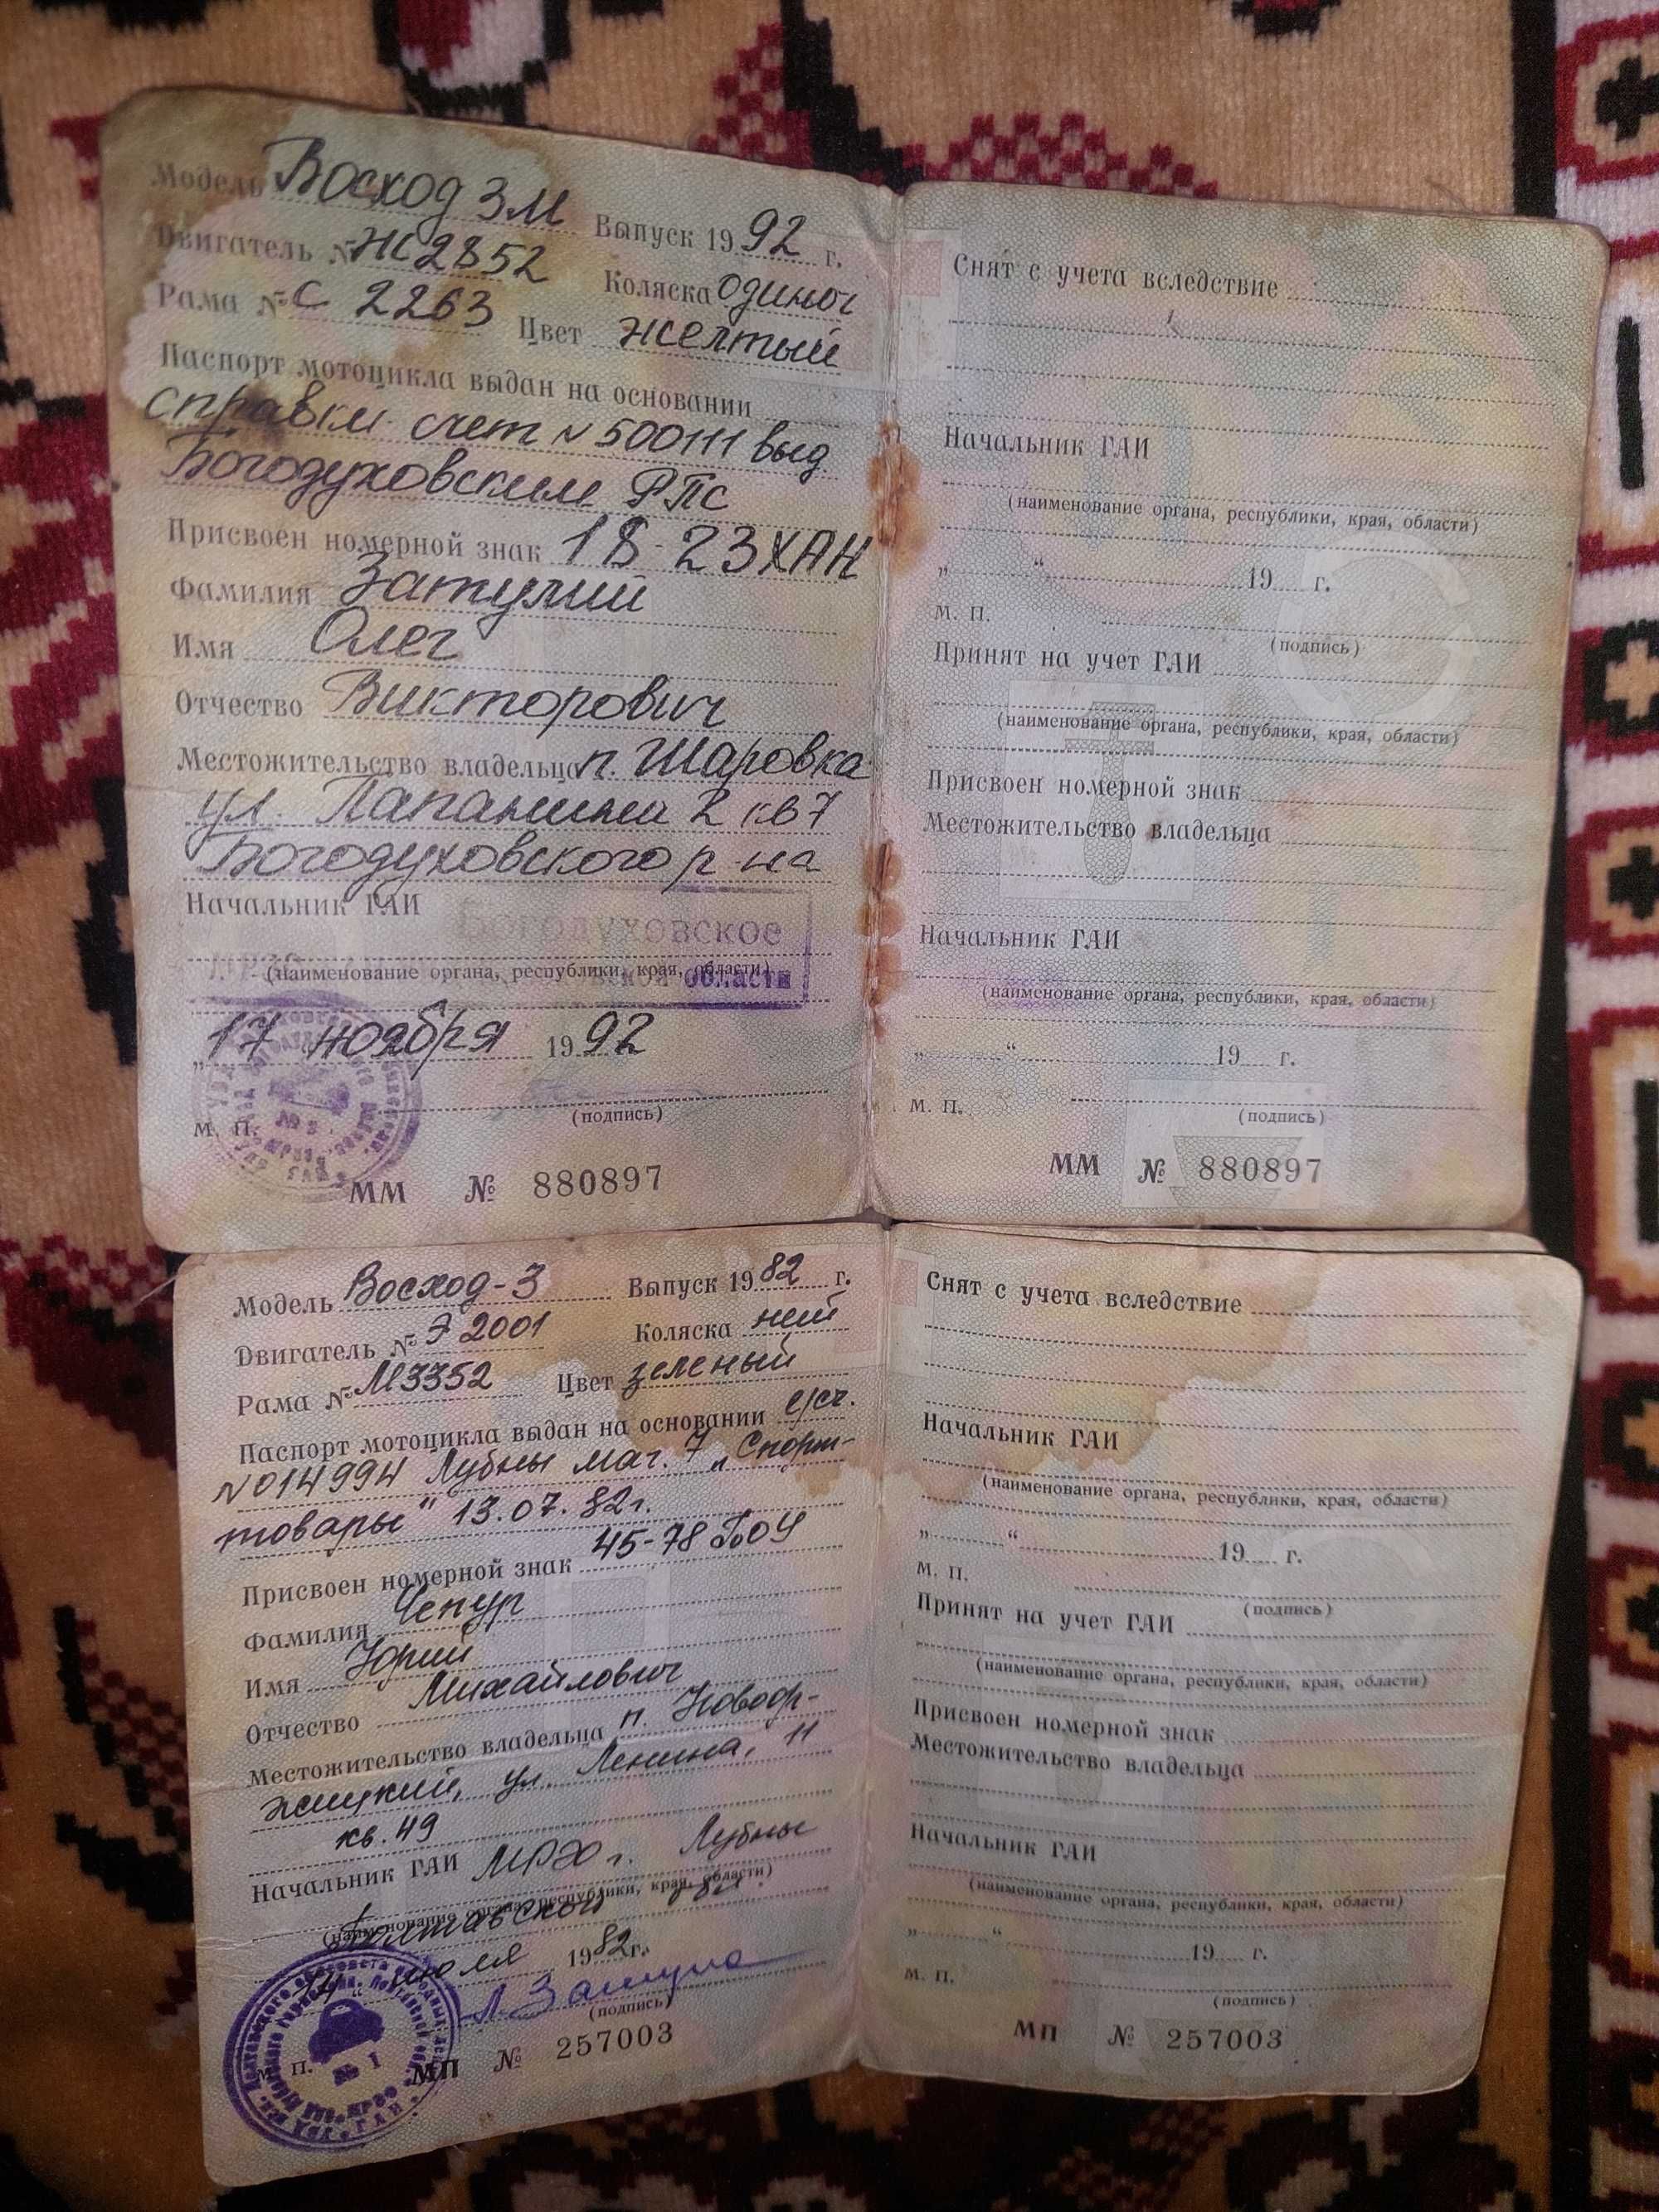 Модель Восход 3М Выпуск 1992 г.
Двигатель № Ж2852 Коляска одиноч
Рама № С 2263 Цвет желтый
Паспорт мотоцикла выдан на основании
справки счет N 500111 выд
Богодуховским РПС
Присвоен номерной знак 18-23 ХАН
Фамилия
Имя Олег
Отчество Викторович
Местожительство владельца п. Шаровка
ул. Папанина 2 кв 7
Богодуховского р-на
Начальник ГАИ
Богодуховское
(наименование органа, республики, края, области)
области
„17 ноября 1992
(подпись)
М. П.
ММ № 880897
Снят с учета вследствие
Начальник ГАИ
(наименование органа, республики, края, области)
„ “ 19 г.
М. П.
(подпись)
Принят на учет ГАИ
(наименование органа, республики, края, области)
Присвоен номерной знак
Местожительство владельца
Начальник ГАИ
(наименование органа, республики, края, области)
„ “ 19 г.
М. П.
(подпись)
ММ № 880897
Модель Восход-3 Выпуск 1982 г.
Двигатель № Э 2001 Коляска нет
Рама № М3352 Цвет зеленый
Паспорт мотоцикла выдан на основании с/сч.
N014994 Лубны маг. 7 „Спорт-
товары" 13.07.82г.
Присвоен номерной знак 45-78
Фамилия Чепур
Имя Юрий
Отчество Михайлович
Местожительство владельца п. Новоор-
жицкий, ул. Ленина, 11
кв. 49
Начальник ГАИ МРЭО г. Лубны
(наименование органа, республики, края, области)
Полтавской обл.
14 июля 1982г.
(подпись)
М. П.
№ 1
МП № 257003
Снят с учета вследствие
Начальник ГАИ
(наименование органа, республики, края, области)
„ “ 19 г.
М. П.
(подпись)
Принят на учет ГАИ
(наименование органа, республики, края, области)
Присвоен номерной знак
Местожительство владельца
Начальник ГАИ
(наименование органа, республики, края, области)
„ “ 19 г.
М. П.
(подпись)
МП № 257003